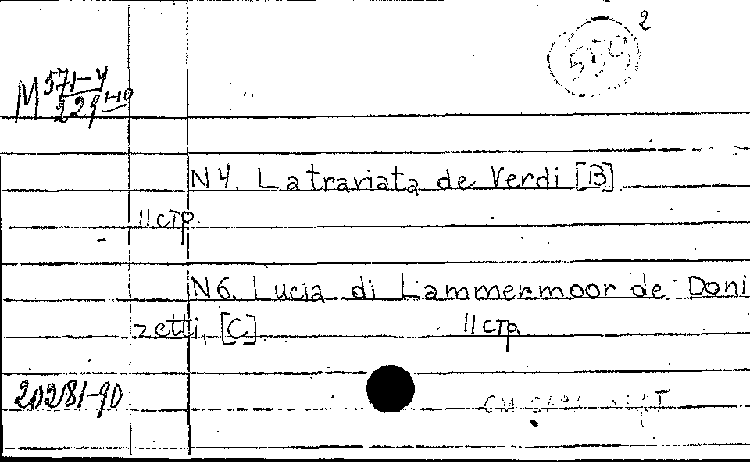 2
M 571-4
229 1-10
N4. La traviata de Verdi [B]
11 стр.
N6. Lucia di Lammermoor de Doni
zetti. [C] 11 стр
20281-90